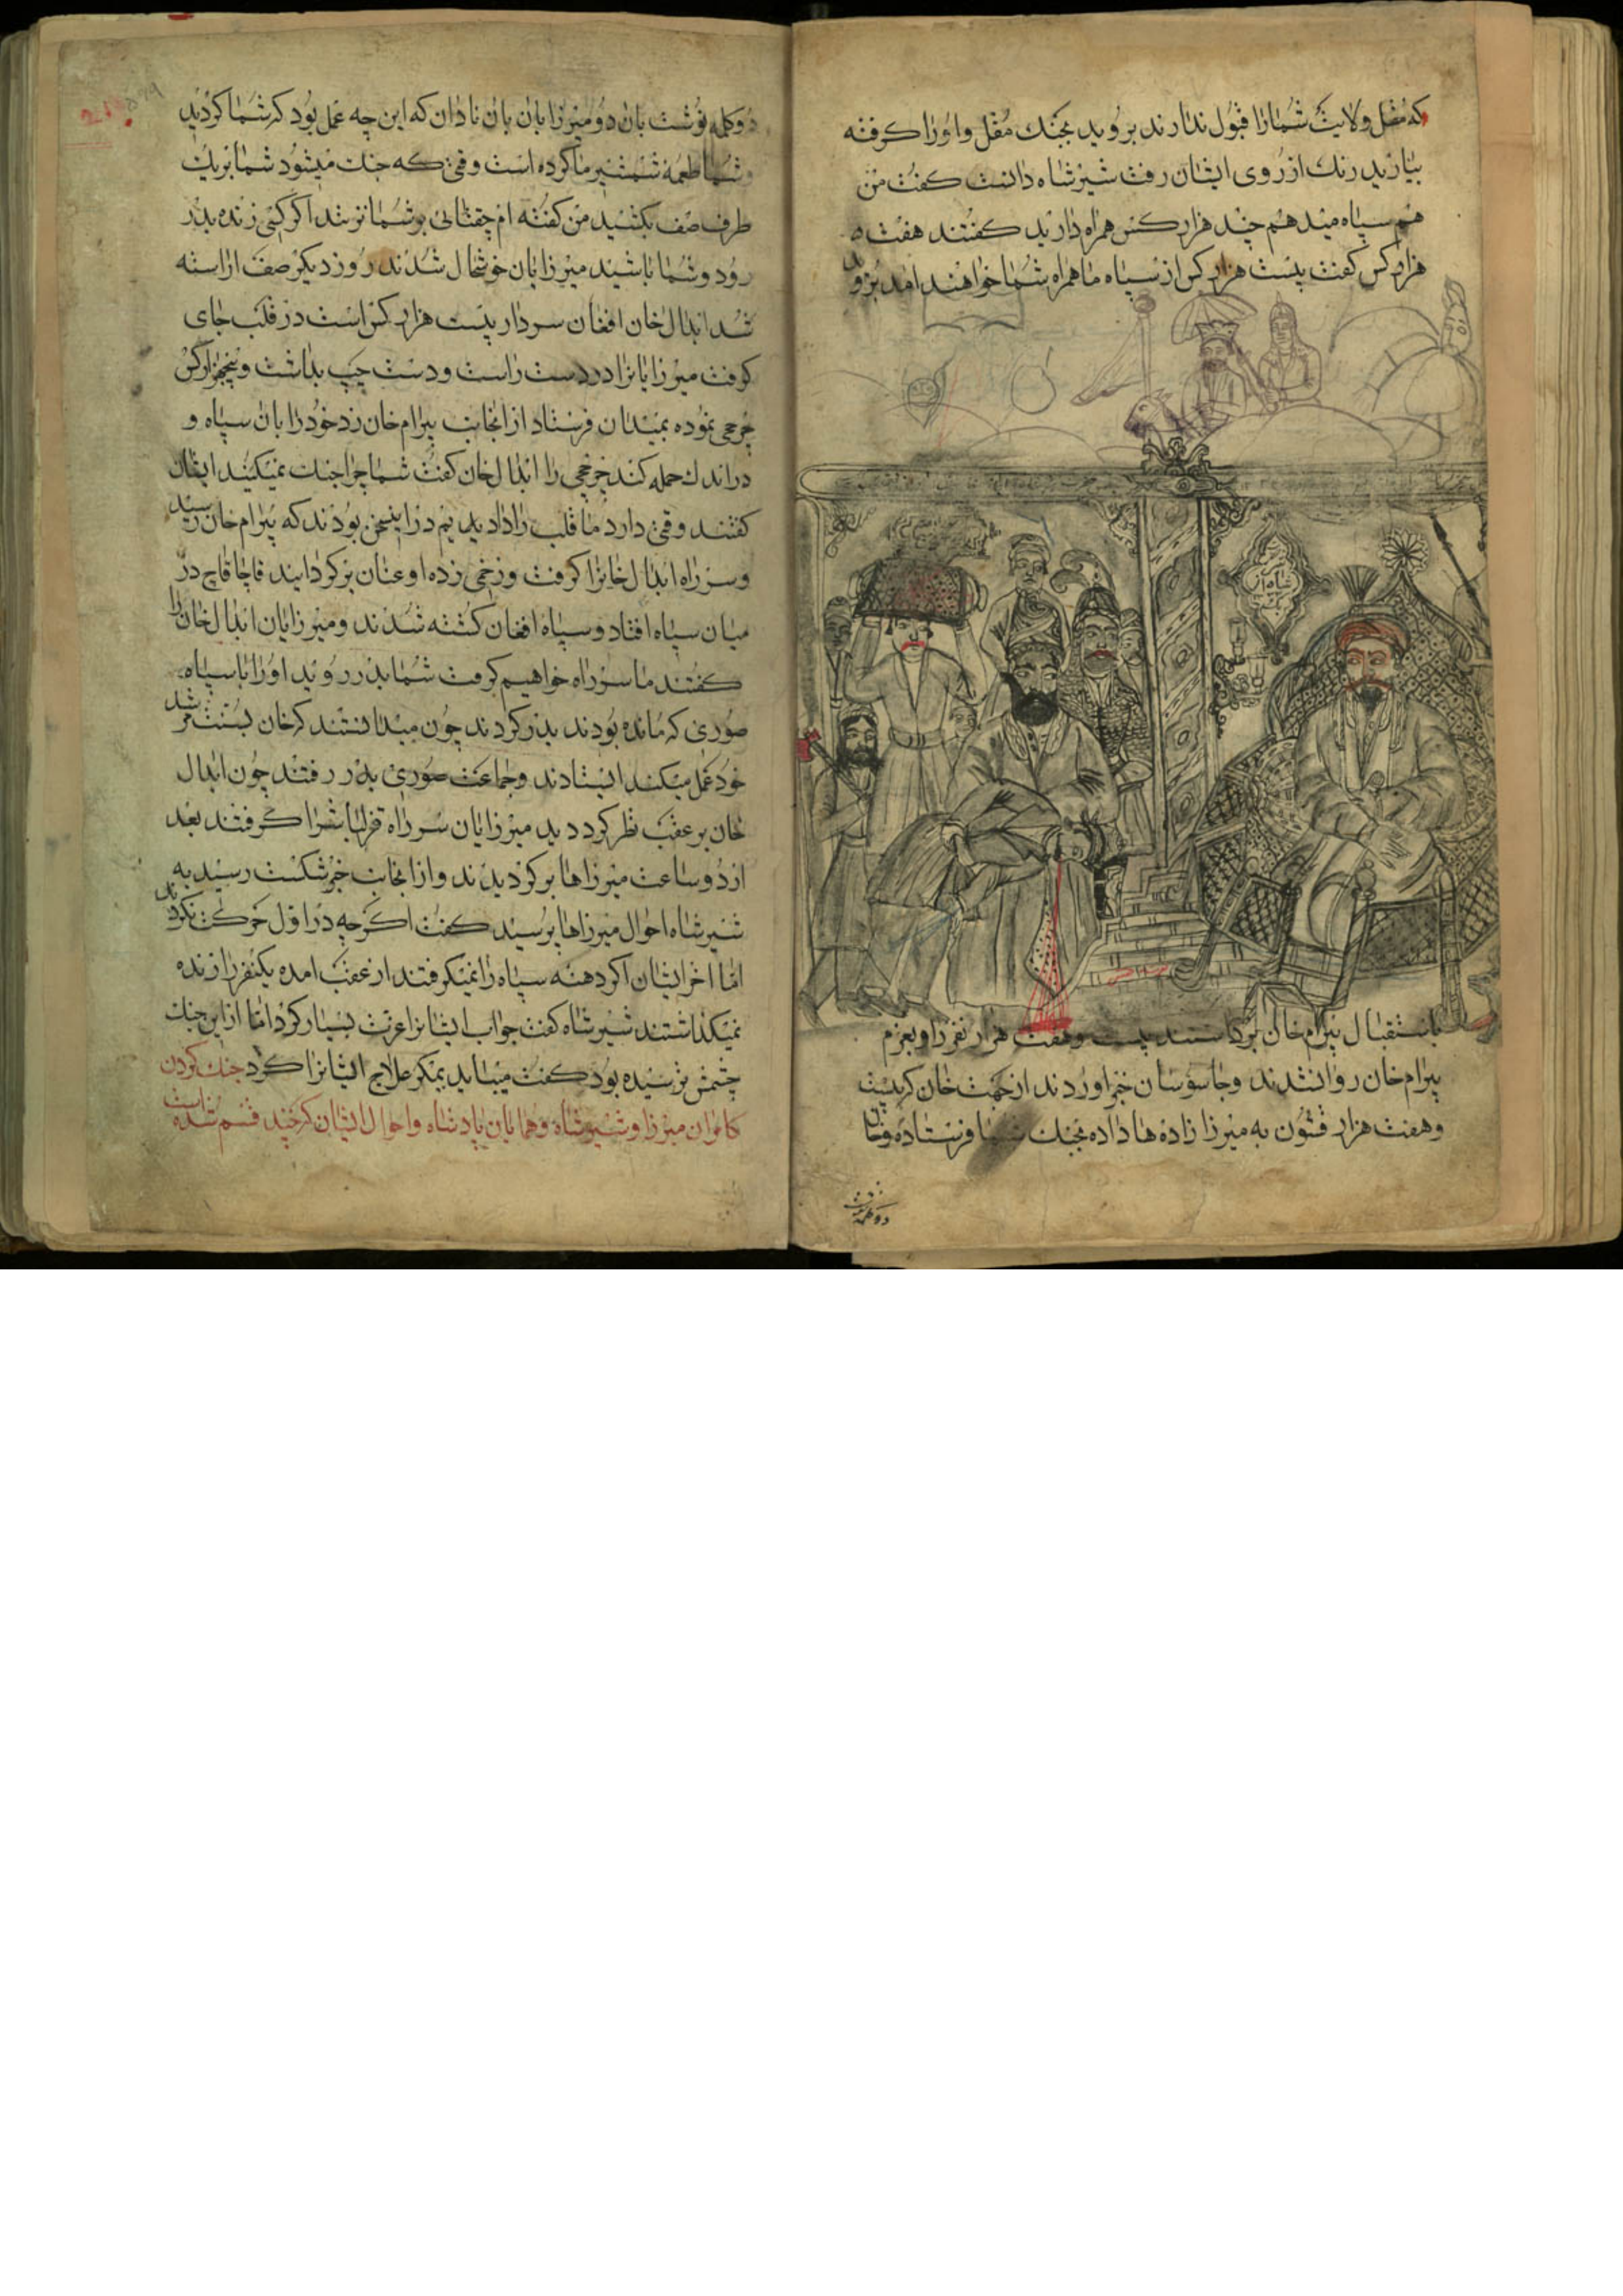 که مغل ولایت شما را قبول ندارند بروید بجنک مغل و او را کرفته
بیارید رنک از روی ایشان رفت شیرشاه دانست کفت من
هم سپاه میدهم چند هزار کس همراه دارید کفتند هفت
هزار کس کفت بیست هزار کس از سپاه ما همراه شما خواهند امد بروید
باستقبال بیرام خان برخاستند بیست و هفت هزار نفر را و بعزم
بیرام خان روانشدند و جاسوسان خبر اوردند از جهت خان که بیست
و هفت هزار قشون به میرزا زاده ها داده بجنک شما فرستاده و خان
دو کلمه نوشت
دو کلمه نوشت بان دو میرزایان بان نادان که این چه عمل بود که شما کردید
و شما را طعمه شمشیر ما کرده است وقتی که جنک میشود شما بر یک
طرف صف بکشید من کفته ام چقتائی بر شما نزند اکر کسی زنده بدر
رود و شما باشید میرزایان خوشحال شدند روز دیکر صف اراسته
شد ابدال خان افغان سردار بیست هزار کس است در قلب جای
کرفت میرزایانرا در دست راست و دست چپ بداشت و پنجهزار کس
چرخچی نموده بمیدان فرستاد از انجانب بیرام خان زد خود را بان سپاه و
در اندک حمله کند چرخچی را ابدال خان کفت شما چرا جنک نمیکنید ایشان
کفتند وقتی دارد ما قلب را دادیدیم در این سخن بودند که بیرام خان رسید
و سر راه ابدال خانرا کرفت و زخمی زده او عنان بر کردانید قاچاقاچ در
میان سپاه افتاد و سپاه افغان کشته شدند و میرزایان ابدال خان را
کفتند ما سر راه خواهیم کرفت شما بدر روید او را با سپاه
صوری که مانده بودند بدر کردند چون میدانستند که خان بسته شد
خود عمل میکنند ایستادند و جماعت صوری بدر رفتند چون ابدال
خان بر عقب نظر کرد دید میرزایان سر راه قزلباش را کرفتند بعد
از دو ساعت میرزاها بر کردیدند و از انجانب خبر شکست رسید به
شیرشاه احوال میرزاها پرسید کفت اکرچه در اول حرکت نکردند
اما اخر ایشان اکر دهنه سپاه را نمیکرفتند از عقب امده یکنفر را زنده
نمیکذاشتند شیرشاه کفت جواب ایشانرا عزت بسیار کرد اما از این جنک
چشمش ترسیده بود کفت میباید بفکر علاج ایشانرا کرد جنک کردن
کامران میرزا و شیرشاه و همایان پادشاه و احوال ایشان که چند قسم شده است